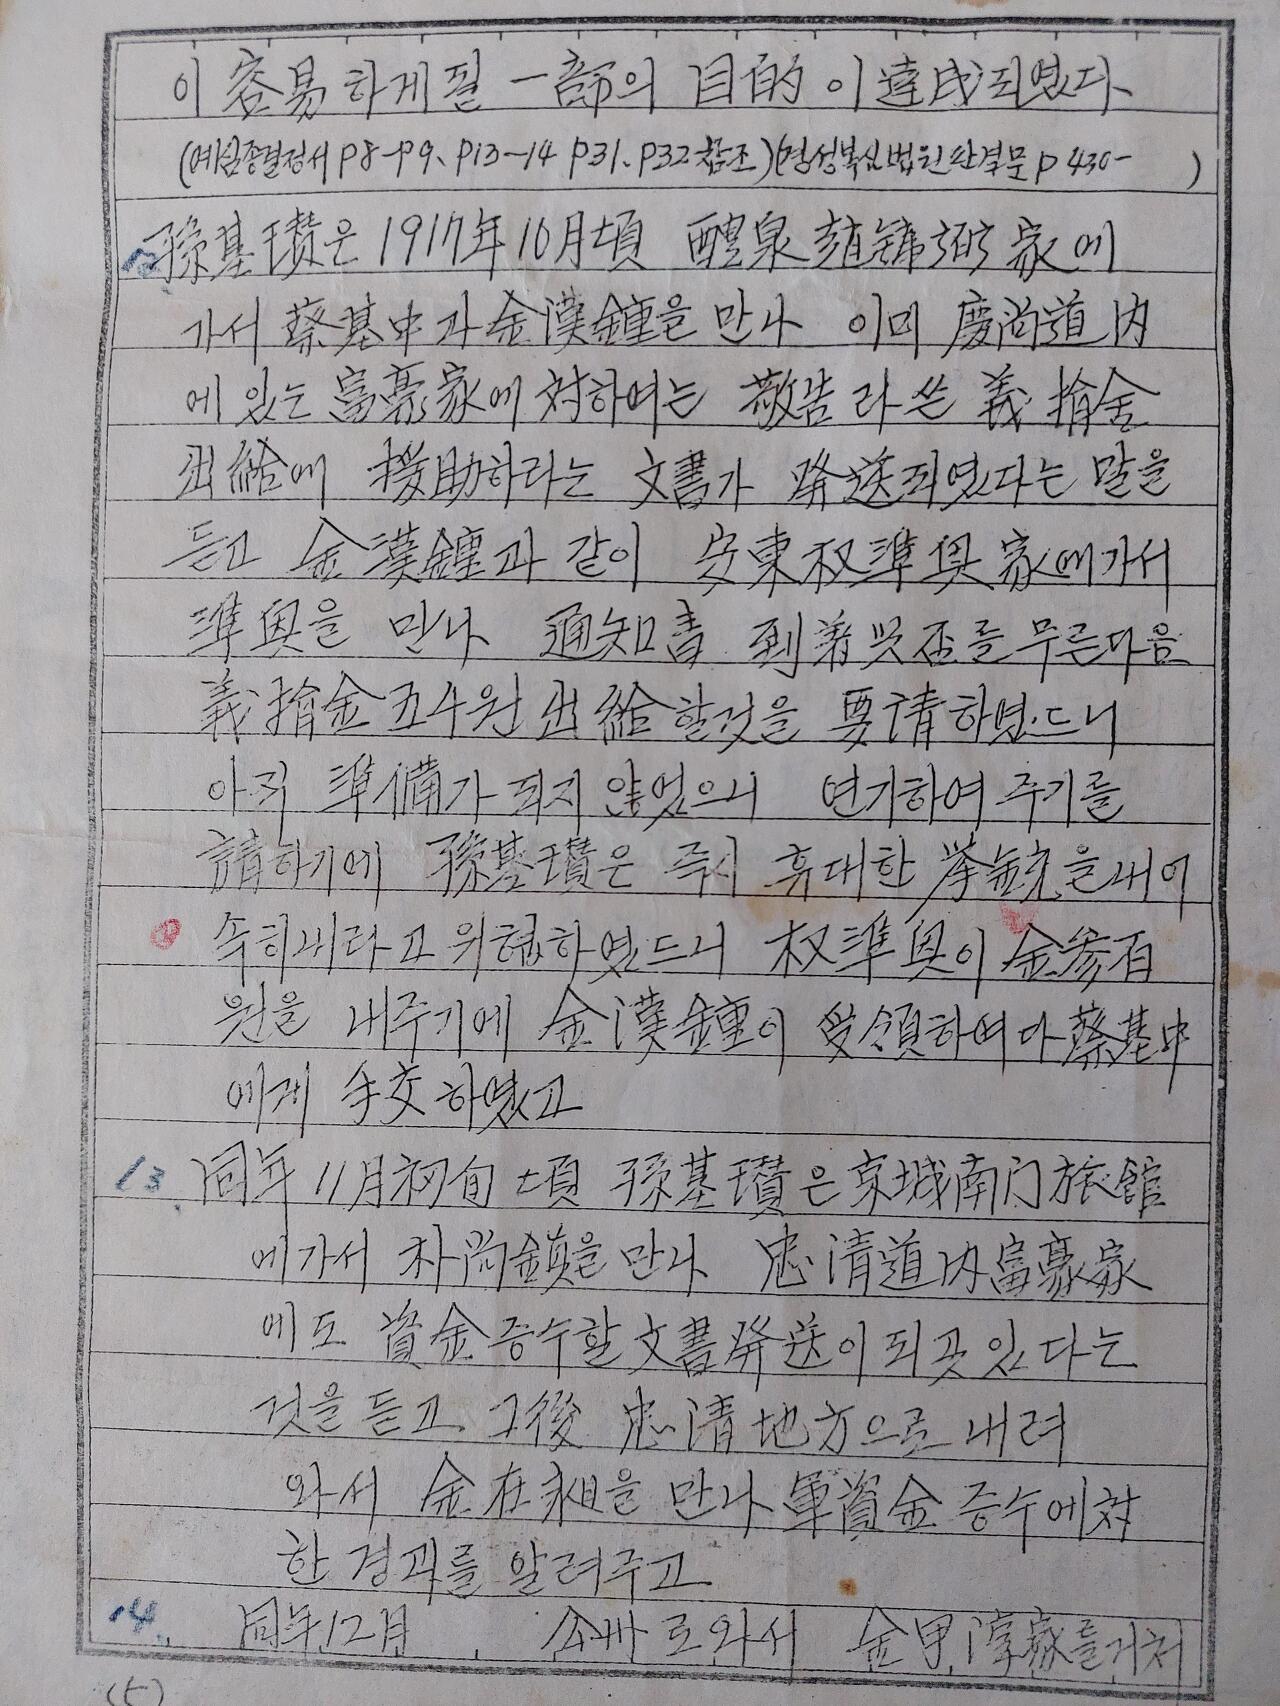 이 容易하게 될 一部의 目的이 達成되였다.
(예심종결정서 P8-P9、P13-14 P31、P32참조)(경성복심법원판결문 P 430- )
12 孫基瓚은 1917年 10月頃 醴泉 趙鏞弼 家에
가서 蔡基中과 金漢鍾을 만나 이미 慶尚道內
에 있는 富豪家에 対하여는 敬告라 쓴 義捐金
出給에 援助하라는 文書가 発送되였다는 말을
듣고 金漢鍾과 같이 安東 权準興 家에가서
準興을 만나 通知書 到着 与否를 무른다음
義捐金 五千원 出給할것을 要請하였드니
아직 準備가 되지 않었으니 연기하여 주기를
請하기에 孫基瓚은 즉시 휴대한 拳銃을 내여
속히내라고 위협하였드니 权準興이 金参百
원을 내주기에 金漢鍾이 受領하여다 蔡基中
에게 手交하였고
13 同年 11月 初旬 頃 孫基瓚은 京城南门旅館
에가서 朴尚鎮을 만나 忠清道内富豪家
에도 資金 증수할 文書発送이 되곳 있다는
것을 듣고 그後 忠清地方으로 내려
와서 金在昶을 만나 軍資金 증수에対
한 경과를 알려주고
14 同年 12月 公州로와서 金甲淳家를거처
(5)